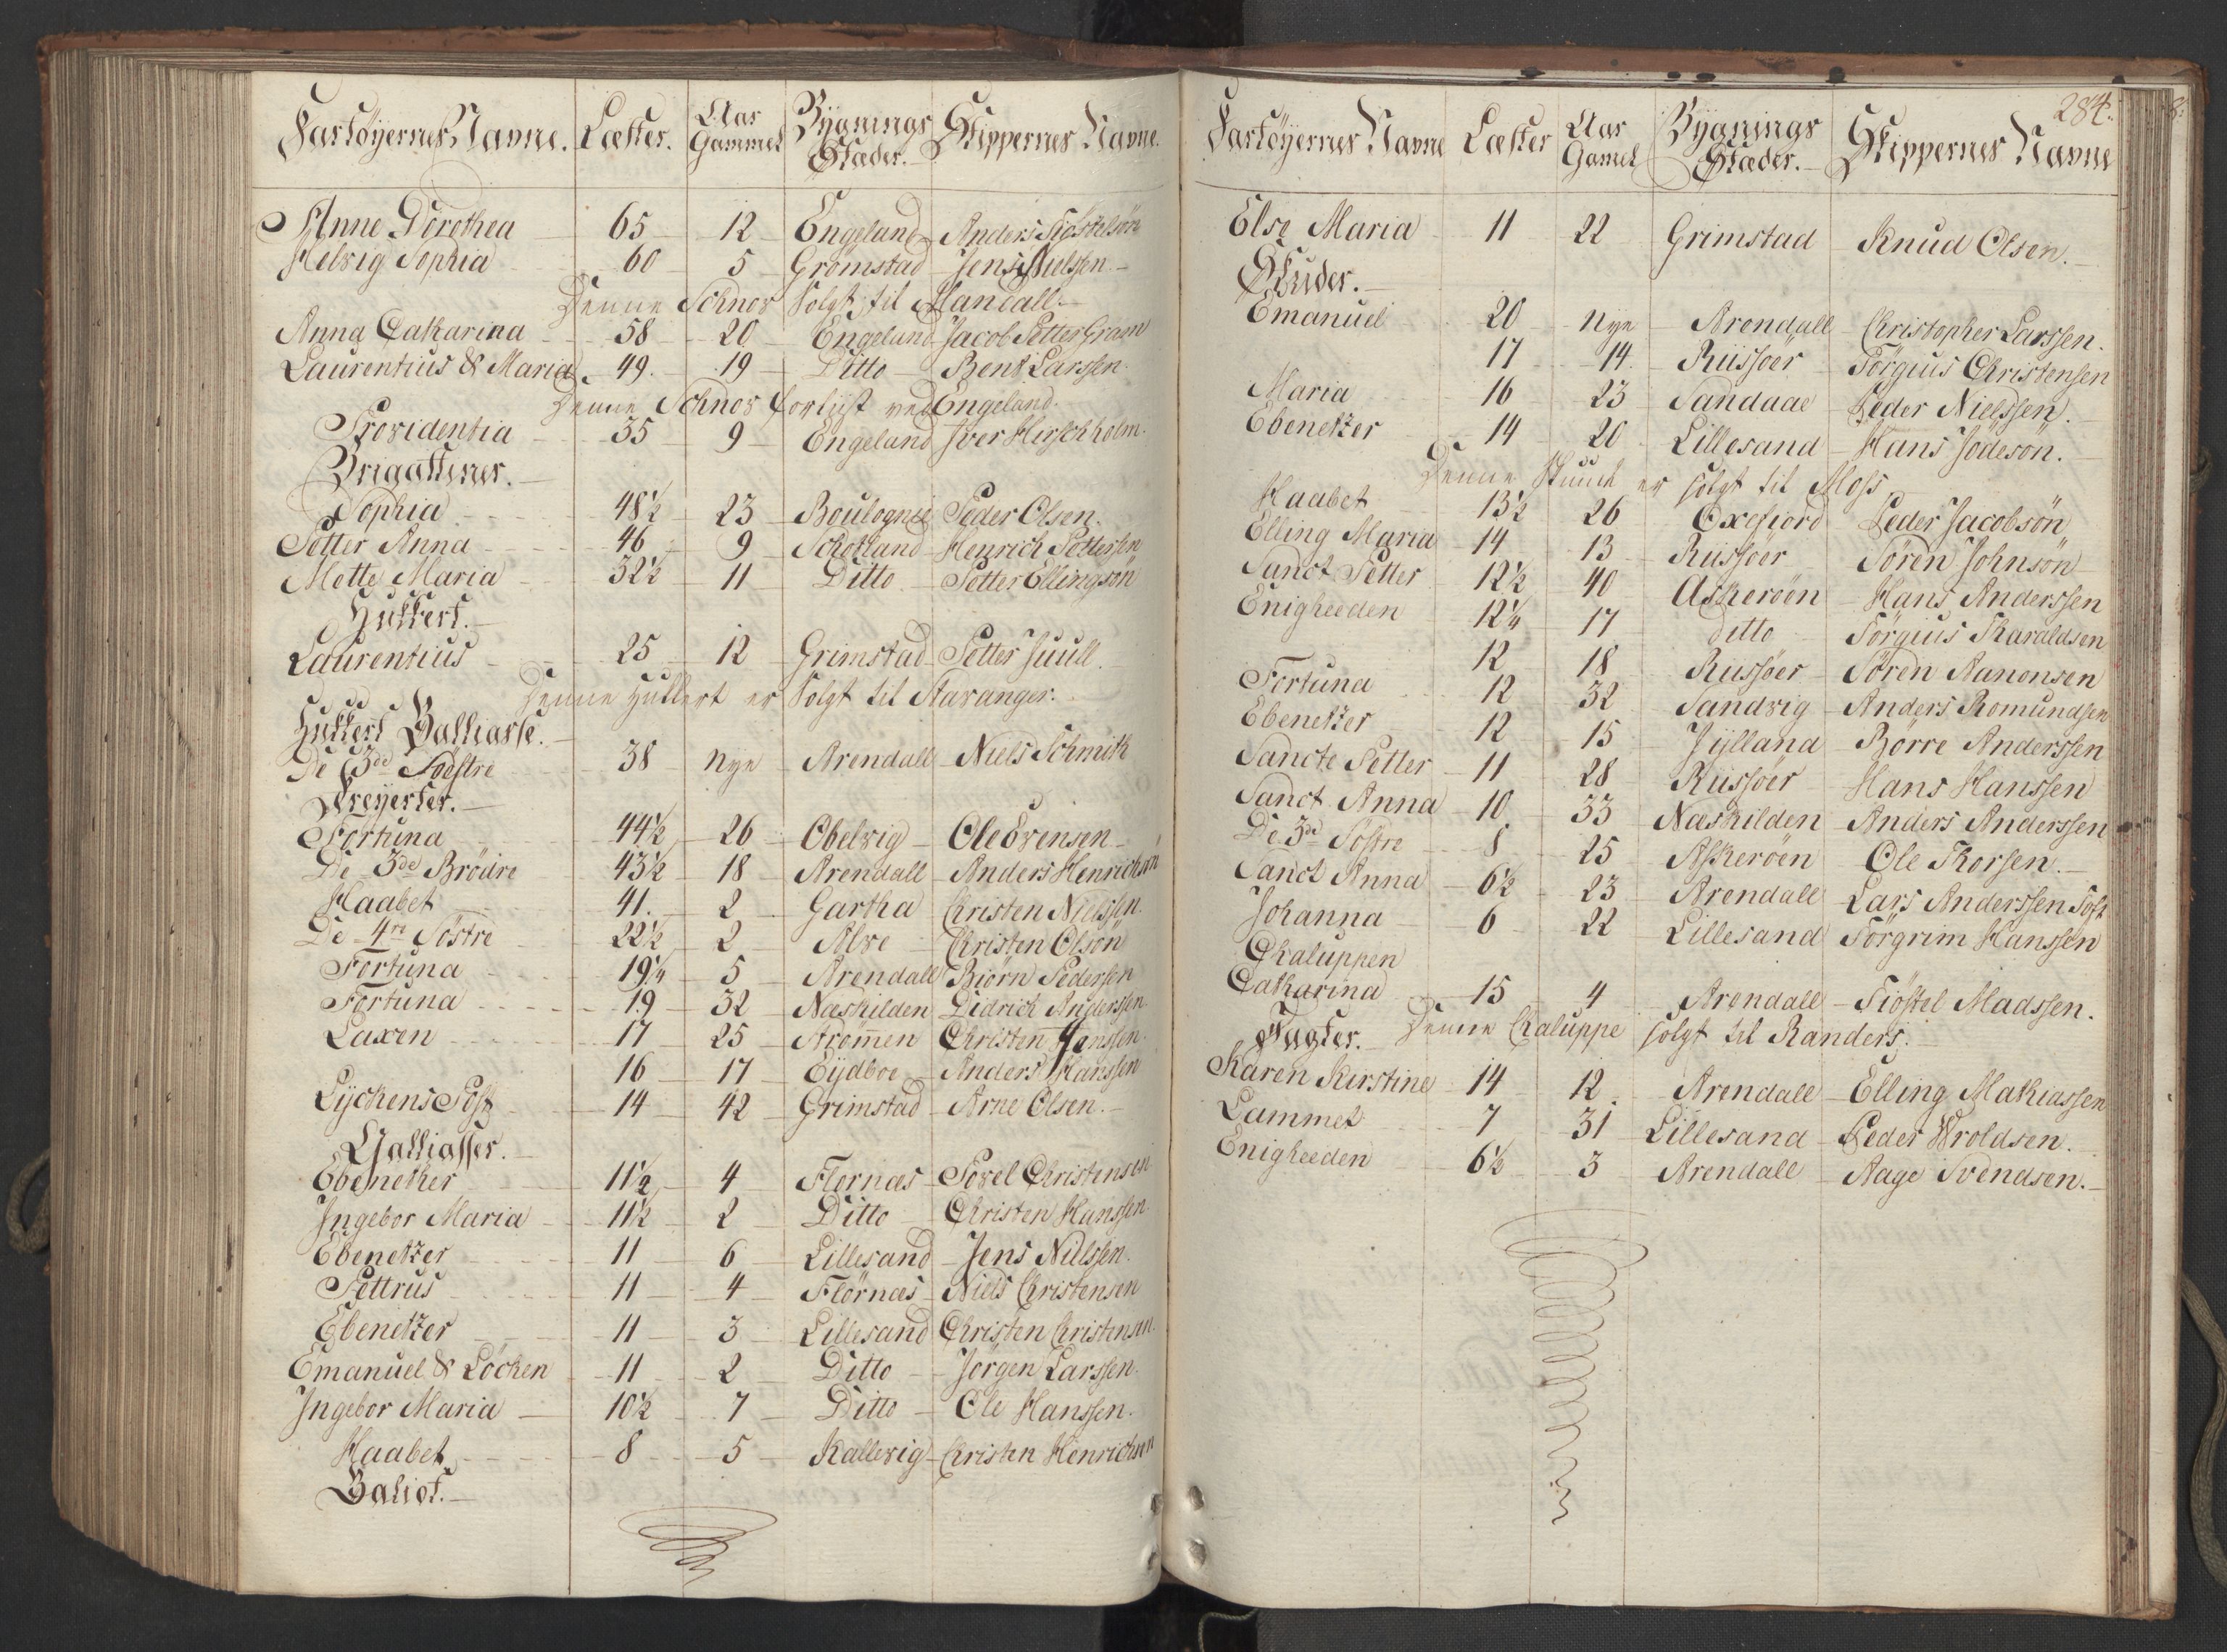 Fartøyernes Navne. Læster. Aar Gammel Bygnings Stæder. Skippernes Navne.
Anne Dorothea 65 12 Engeland Anders Siöstelsön
Helvig Sophia 60 5 Grömstad Jens Nielssen.
Denne Schnos Solgt til Mandall.
Anna Catharina 58 20 Engeland Jacob Petter Gram
Laurentius & Maria 49. 19 Ditto Bent Larssen.
Denne Schnos forliist ved Engeland.
Providentia 35 9 Engeland Iver Hirschholm.
Brigattiner.
Sophia 48½ 23 Boulognie Peder Olsen.
Petter Anna 46 9 Schotland Henrich Pettersen
Mette Maria 32½ 11 Ditto Petter Ellingsön
Hukkert.
Laurentius 25 12 Grimstad Petter Juull.
Denne Hukkert er Solgt til Stavanger.
Hukkert Galliasse.
De 3de Söestre 38 nye Arendall Niels Schmith
Kreyerter.
Fortuna 44½ 26 Obelvig Ole Evensen
De 3de Brödre 43½ 18 Arendall Anders Henrichsön
Haabet 41. 2 Gartha Christen Nielssen.
De 4re Söstre 22½ 2 Alve Christen Olsön
Fortuna 19¼ 5 Arendall Biörn Pedersen
Fortuna 19 32 Næskilden Didrich Anderssen
Laxen 17 25 Strömen Christen Hanssen.
16 17 Eydboe Anders Hanssen
Lyckens Post 14 42 Grimstad Arne Olsen.
Galliasser.
Ebenetzer 11½ 4 Flornæs Povel Christensen
Ingebor Maria 11½ 2 Ditto Christen Hanssen.
Ebenetzer 11 6 Lillesand Jens Nielssen.
Pettrus 11 4 Flörnæs Niels Christensen
Ebenetzer 11 3 Lillesand Christen Christensen.
Emanuel & Löcken 11 2 Ditto Jörgen Larssen.
Ingebor Maria 10½ 7 Ditto Ole Hanssen.
Haabet 8 5 Kallevig Christen Henrichsen
Galiot.
284.
Fartöyernes Navne Læster Aar Gamel Bygnings Stæder. Skippernes Navne
Else Maria 11 22 Grimstad Knud Olsen.
Skuder.
Emanuel 20 nye Arendall Christopher Larssen.
17 14. Riisöer Törgius Christensen
Maria 16 23 Sandaae Peder Nielssen.
Ebenetzer 14 20 Lillesand Hans Jödesön.
Denne Skude er solgt til Moss
Haabet 13½ 26 Oxefiord Peder Jacobsön
Elling Maria 14 13 Riissöer Sören Johnsön
Sanct Petter 12½ 40 Askeröen Hans Anderssen
Enigheeden 12¼ 17 ditto Törgius Tharaldsen
12 18 Russöer Sören Aanonsen
Fortuna 12 32 Sandvig Anders Romundsen
Ebenetzer 12 15 Jylland Börre Anderssen
Sancte Petter 11 28 Riissöer Hans Hanssen
Sanct Anna 10 33 Næskilden Anders Anderssen
De 3de Söstre 8 25 Askeröen Ole Thorsen.
Sanct Anna 6½ 23 Arendall Lars Anderssen Tost
Johanna 6 22 Lillesand Törgrim Hanssen
Chaluppen
Catharina 15 4 Arendall Siöstel Madssen.
Denne Chaluppe solgt til Randers.
Jagter.
Karen Kirstine 14 12. Arendall Elling Mathiassen
Lammet 7 31 Lillesand Peder Wroldsen.
Enigheeden 6½ 3 Arendall Aage Svendsen.